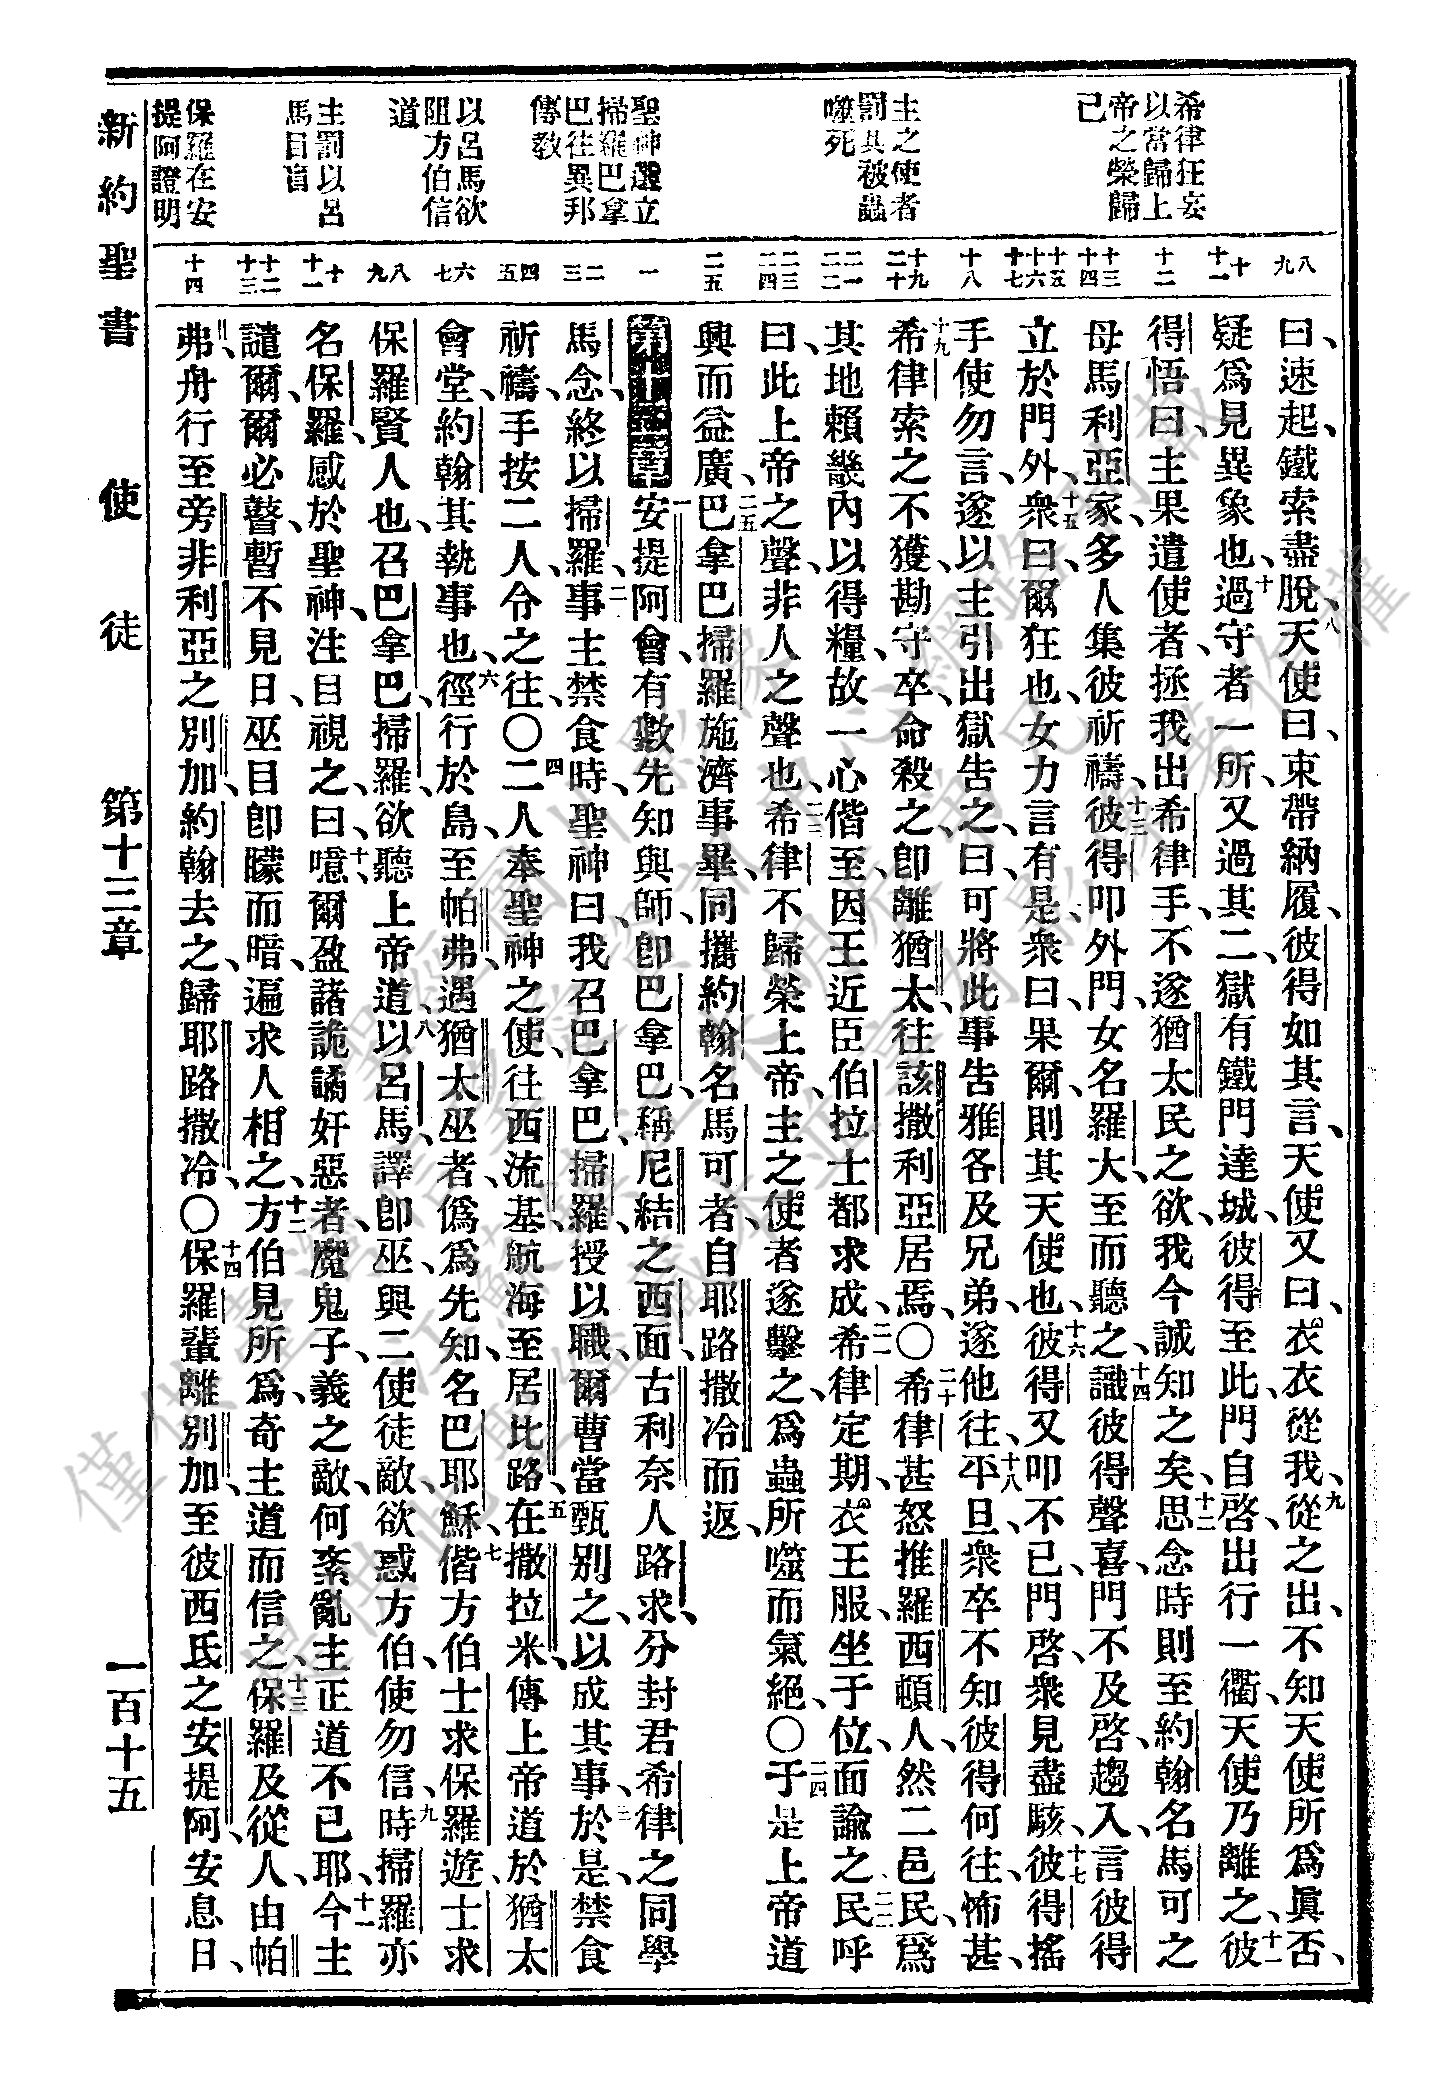 希律狂妄
以當歸上
帝之榮歸
己
主之使者
罰其被蟲
噬死
聖神選立
掃羅巴拿
巴往異邦
傳教
以呂馬欲
阻方伯信
道
主罰以呂
馬目盲
保羅在安
提阿證明
八
九
十
十一
十二
十三
十四
十五
十六
十七
十八
十九
二十
二一
二二
二三
二四
二五
一
二
三
四
五
六
七
八
九
十
十一
十二
十三
十四
曰、速起、鐵索盡脫、八天使曰、束帶納履、彼得如其言、天使又曰、衣衣從我、九從之出、不知天使所爲眞否、
疑爲見異象也、十過守者一所、又過其二、獄有鐵門達城、彼得至此、門自啓、出行一衢、天使乃離之、十一彼
得悟曰、主果遣使者、拯我出希律手、不遂猶太民之欲、我今誠知之矣、十二思念時、則至約翰名馬可之
母馬利亞家、多人集彼祈禱、十三彼得叩外門、女名羅大、至而聽之、十四識彼得聲、喜、門不及啓、趨入、言彼得
立於門外、十五衆曰、爾狂也、女力言有是、衆曰、果爾、則其天使也、十六彼得又叩不已、門啓、衆見盡駭、十七彼得搖
手使勿言、遂以主引出獄告之、曰、可將此事告雅各及兄弟、遂他往、十八平旦、衆卒不知彼得何往、怖甚、
十九希律索之不獲、勘守卒、命殺之、卽離猶太、往該撒利亞居焉、〇二十希律甚怒推羅西頓人、然二邑民、爲
其地賴畿內以得糧、故一心偕至、因王近臣伯拉士都求成、二一希律定期、衣王服、坐于位、面諭之、二二民呼
曰、此上帝之聲、非人之聲也、二三希律不歸榮上帝、主之使者遂擊之、爲蟲所噬而氣絕、〇二四于是上帝道
興而益廣、二五巴拿巴掃羅施濟事畢、同攜約翰名馬可者、自耶路撒冷而返、
第十三章 一安提阿會、有數先知與師、卽巴拿巴、稱尼結之西面、古利奈人路求、分封君希律之同學
馬念、終以掃羅、二事主禁食時、聖神曰、我召巴拿巴掃羅、授以職、爾曹當甄別之、以成其事、三於是、禁食
祈禱、手按二人、令之往、〇四二人奉聖神之使、往西流基、航海至居比路、五在撒拉米、傳上帝道於猶太
會堂、約翰其執事也、六徑行於島、至帕弗、遇猶太巫者、僞爲先知、名巴耶穌、七偕方伯士求保羅遊、士求
保羅賢人也、召巴拿巴掃羅、欲聽上帝道、八以呂馬、譯卽巫、與二使徒敵、欲惑方伯、使勿信、九時掃羅亦
名保羅、感於聖神、注目視之、曰、十噫、爾盈諸詭譎奸惡者、魔鬼子、義之敵、何紊亂主正道不已耶、十一今主
譴爾、爾必瞽、暫不見日、巫目卽矇而暗、遍求人相之、十二方伯見所爲、奇主道而信之、十三保羅及從人、由帕
弗舟行、至旁非利亞之別加、約翰去之、歸耶路撒冷、〇十四保羅輩離別加、至彼西氐之安提阿、安息日、
新約聖書 使徒 第十三章 一百十五